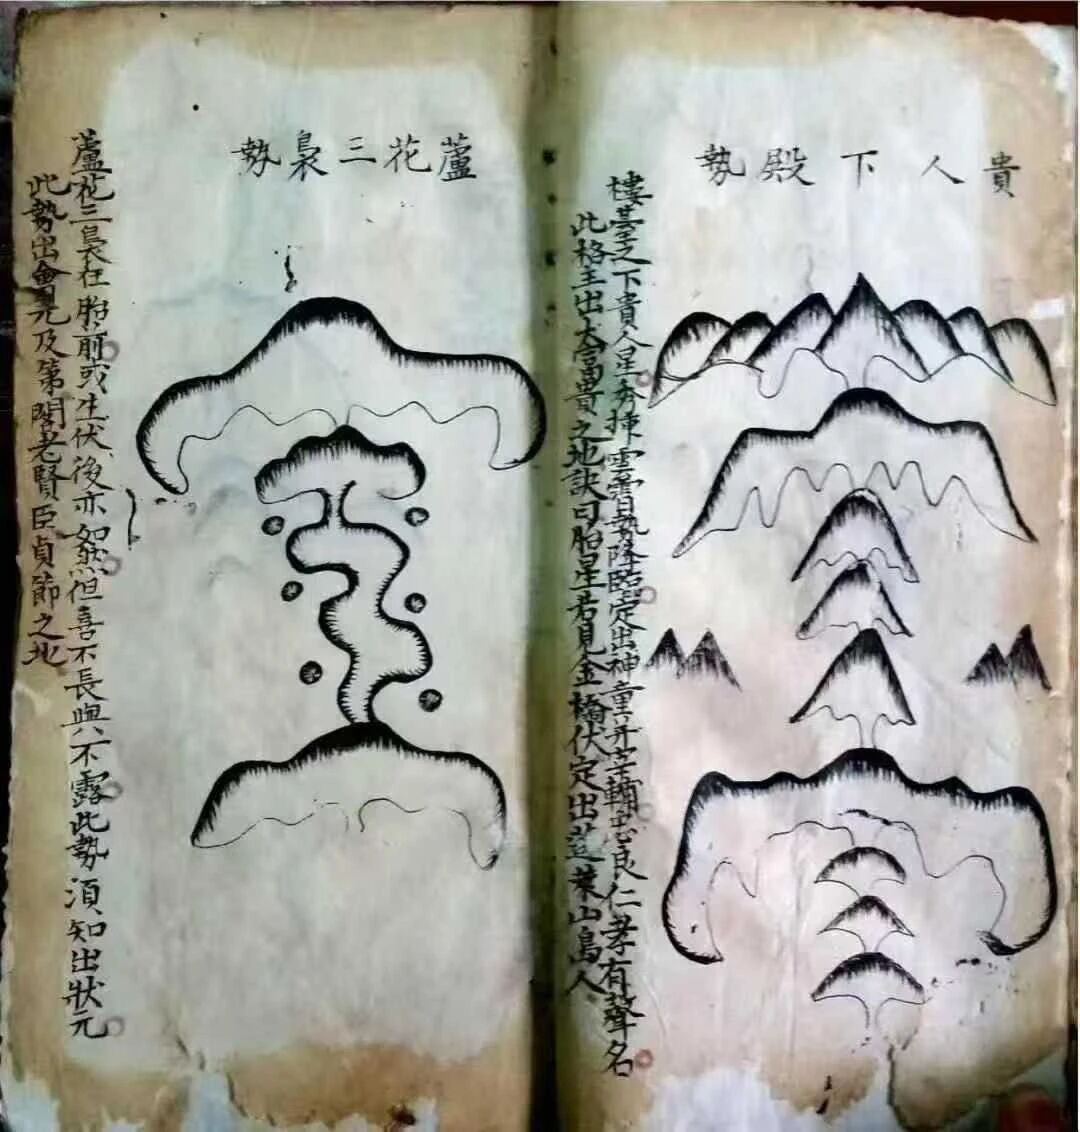 貴人下殿勢
樓臺之下貴人星秀揷雲霄勢降臨定出神童并宰輔忠良仁孝有聲名
此格主出大富貴之地訣曰胎星若見金橋伏定出蓬萊山島人
蘆花三裊勢
蘆花三裊在胎前或生伏後亦如然但喜不長與不露此勢須知出狀元
此勢出會元及第閣老賢臣貞節之地